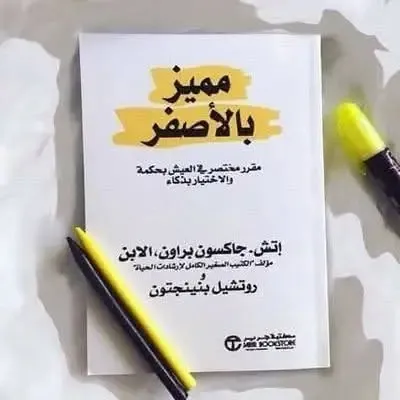 مميز
بالأصفر
مقرر مختصر في العيش بحكمة
والاختيار بذكاء
إتش. جاكسون براون، الابن
مؤلف "الكتيب الصغير الكامل لإرشادات الحياة"
و
روتشيل بنينجتون
مكتبة جرير
JARIR BOOKSTORE